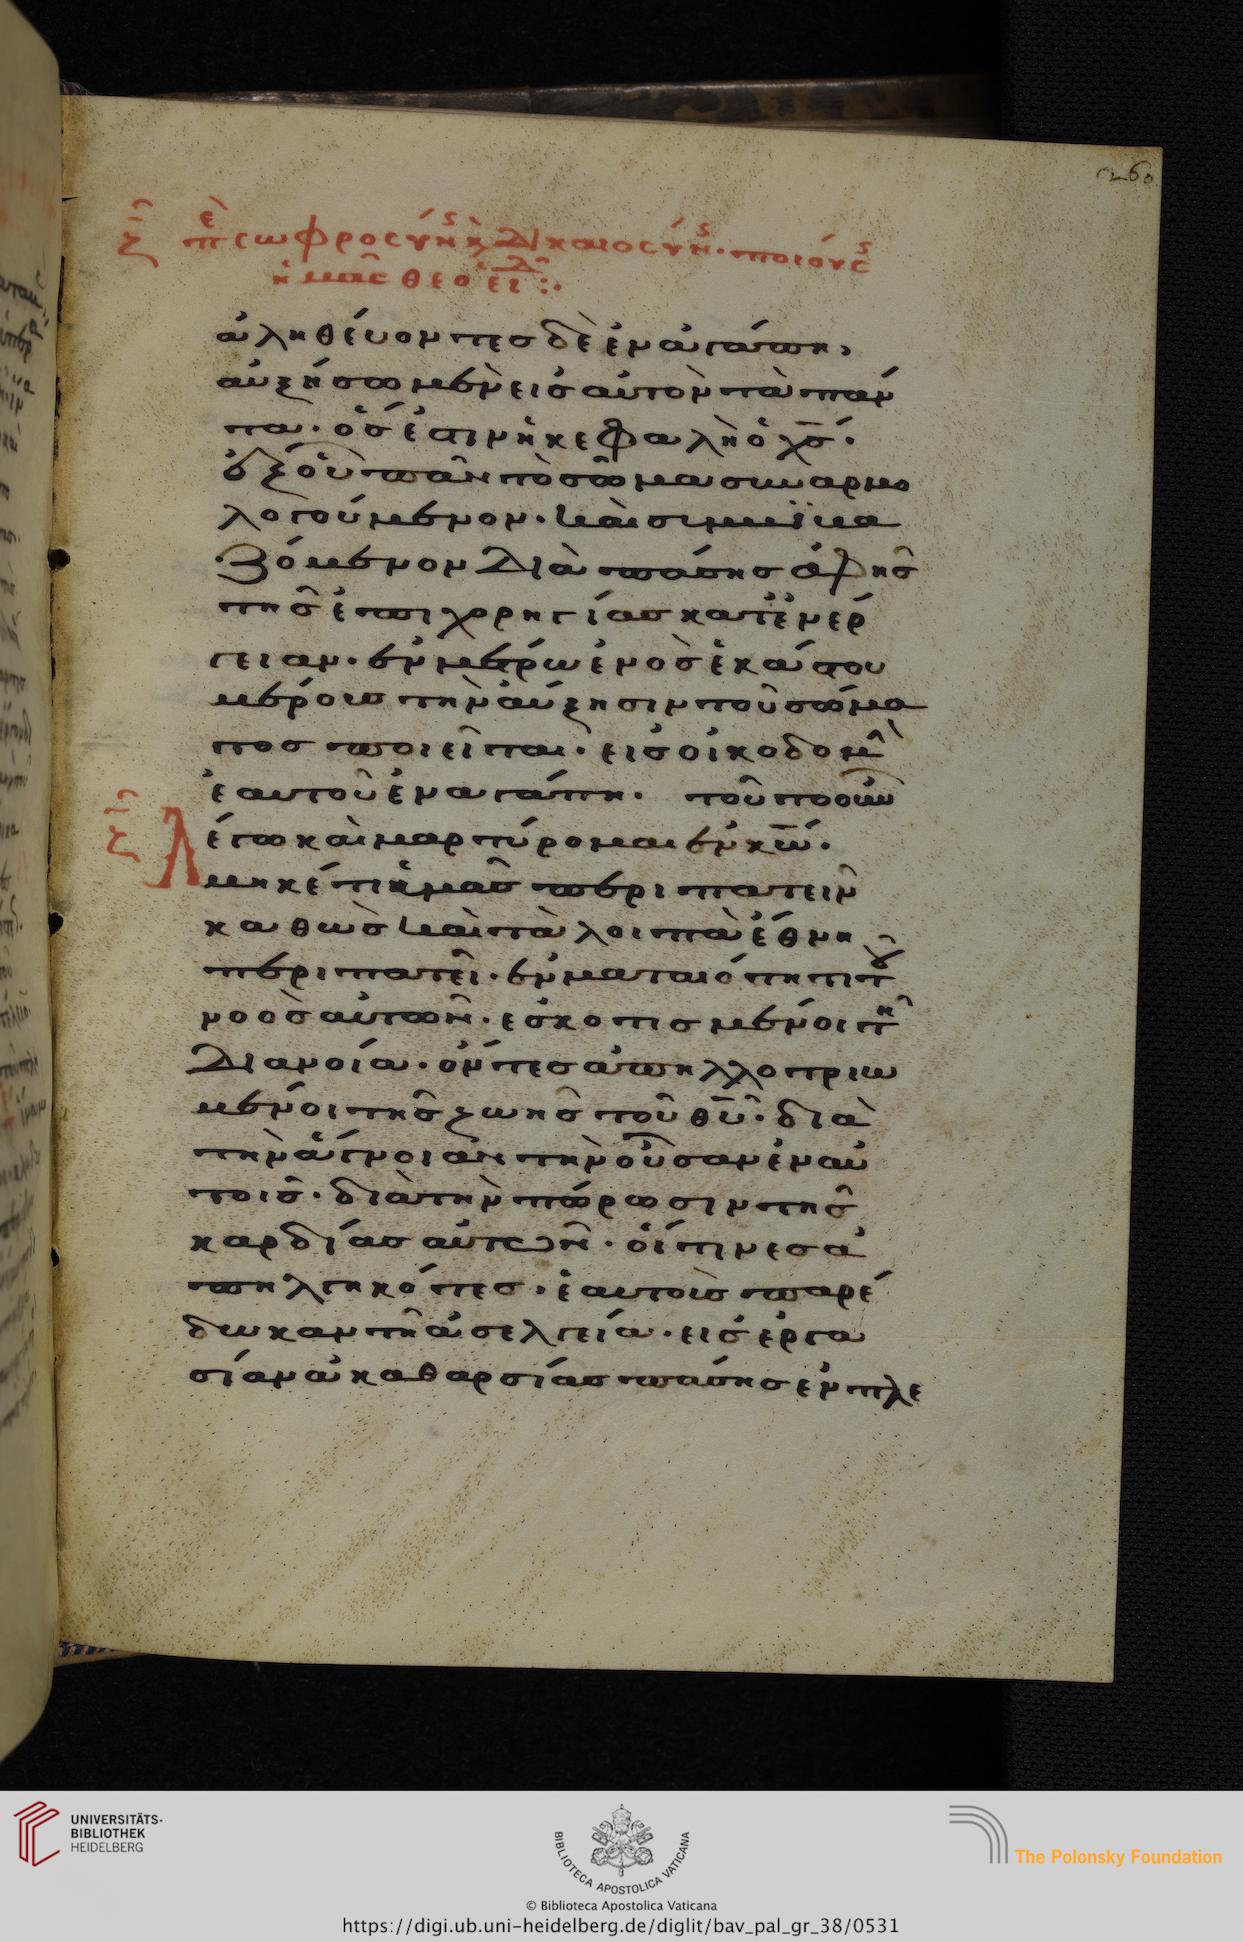 260
ζ̑ πε σωφροσύνης κ δικαιοσύνης· ποιούσης
ἡμᾶς θεοειλ :·
ἀληθέυοντεσ δὲ ἐν ἀγάπη,
αὐξήσωμεν εἰσ αὐτὸν τὰ πάν
τα· ὅσ ἐστιν ἡ κεφαλὴ ὁ χ̅σ̅·
ἐξ οὗ πᾶν τὸ σῶμα συναρμο
λογούμενον· καὶ συμβϊβα
ζόμενον διὰ πάσησ ἁφῆσ
τῆσ ἐπιχορηγίασ κατ ἐνέρ
γειαν· ἐν μέτρω ἑνὸσ ἑκάστου
μέρουσ τὴν ἀύξησιν τοῦ σώμα
τοσ ποιεῖται· εἰσ οἰκοδομὴ
ἑαυτοῦ ἐν αγάπη. τοῦτο οὖν
ζ̑ λέγω καὶ μαρτύρομαι ἐν κ̅ω̅·
μηκέτι ἡμᾶσ περιπατεῖν
καθὼσ καὶ τὰ λοιπὰ ἔθνη
περιπατεῖ· ἐν ματαιότητι τοῦ
νοὸσ αὐτῶν· εσκοτισμένοι τῆ
διανοία· όντεσ ἀπηλλοτριω
μένοι τῆσ ζωῆσ τοῦ θ̅υ̅· διὰ
τὴν ἄγνοιαν τὴν οὖσαν ἐν αὐ
τοισ· διὰ τὴν πώρωσιν τῆσ
καρδίασ αὐτῶν· οἵτινεσ ἀ
πηλγηκότεσ· ἑαυτοὺσ παρέ
δωκαν τῆ ἀσελγεία· εἰσ ἐργα
σίαν ἀκαθαρσίασ πάσησ ἐν πλε
UNIVERSITÄTS-
BIBLIOTHEK
HEIDELBERG
BIBLIOTECA APOSTOLICA VATICANA
The Polonsky Foundation
© Biblioteca Apostolica Vaticana
https://digi.ub.uni-heidelberg.de/diglit/bav_pal_gr_38/0531